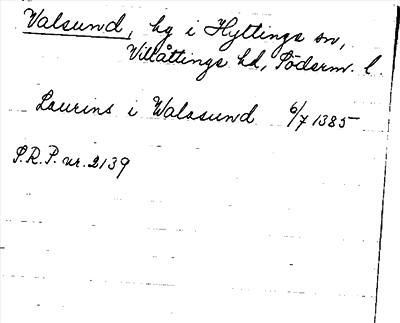 Valsund, hg i Hyttinge sn,
Villåttinge hd, Söderm. l.
Laurins i Walasund 6/7 1385
S.R.P. nr. 2139